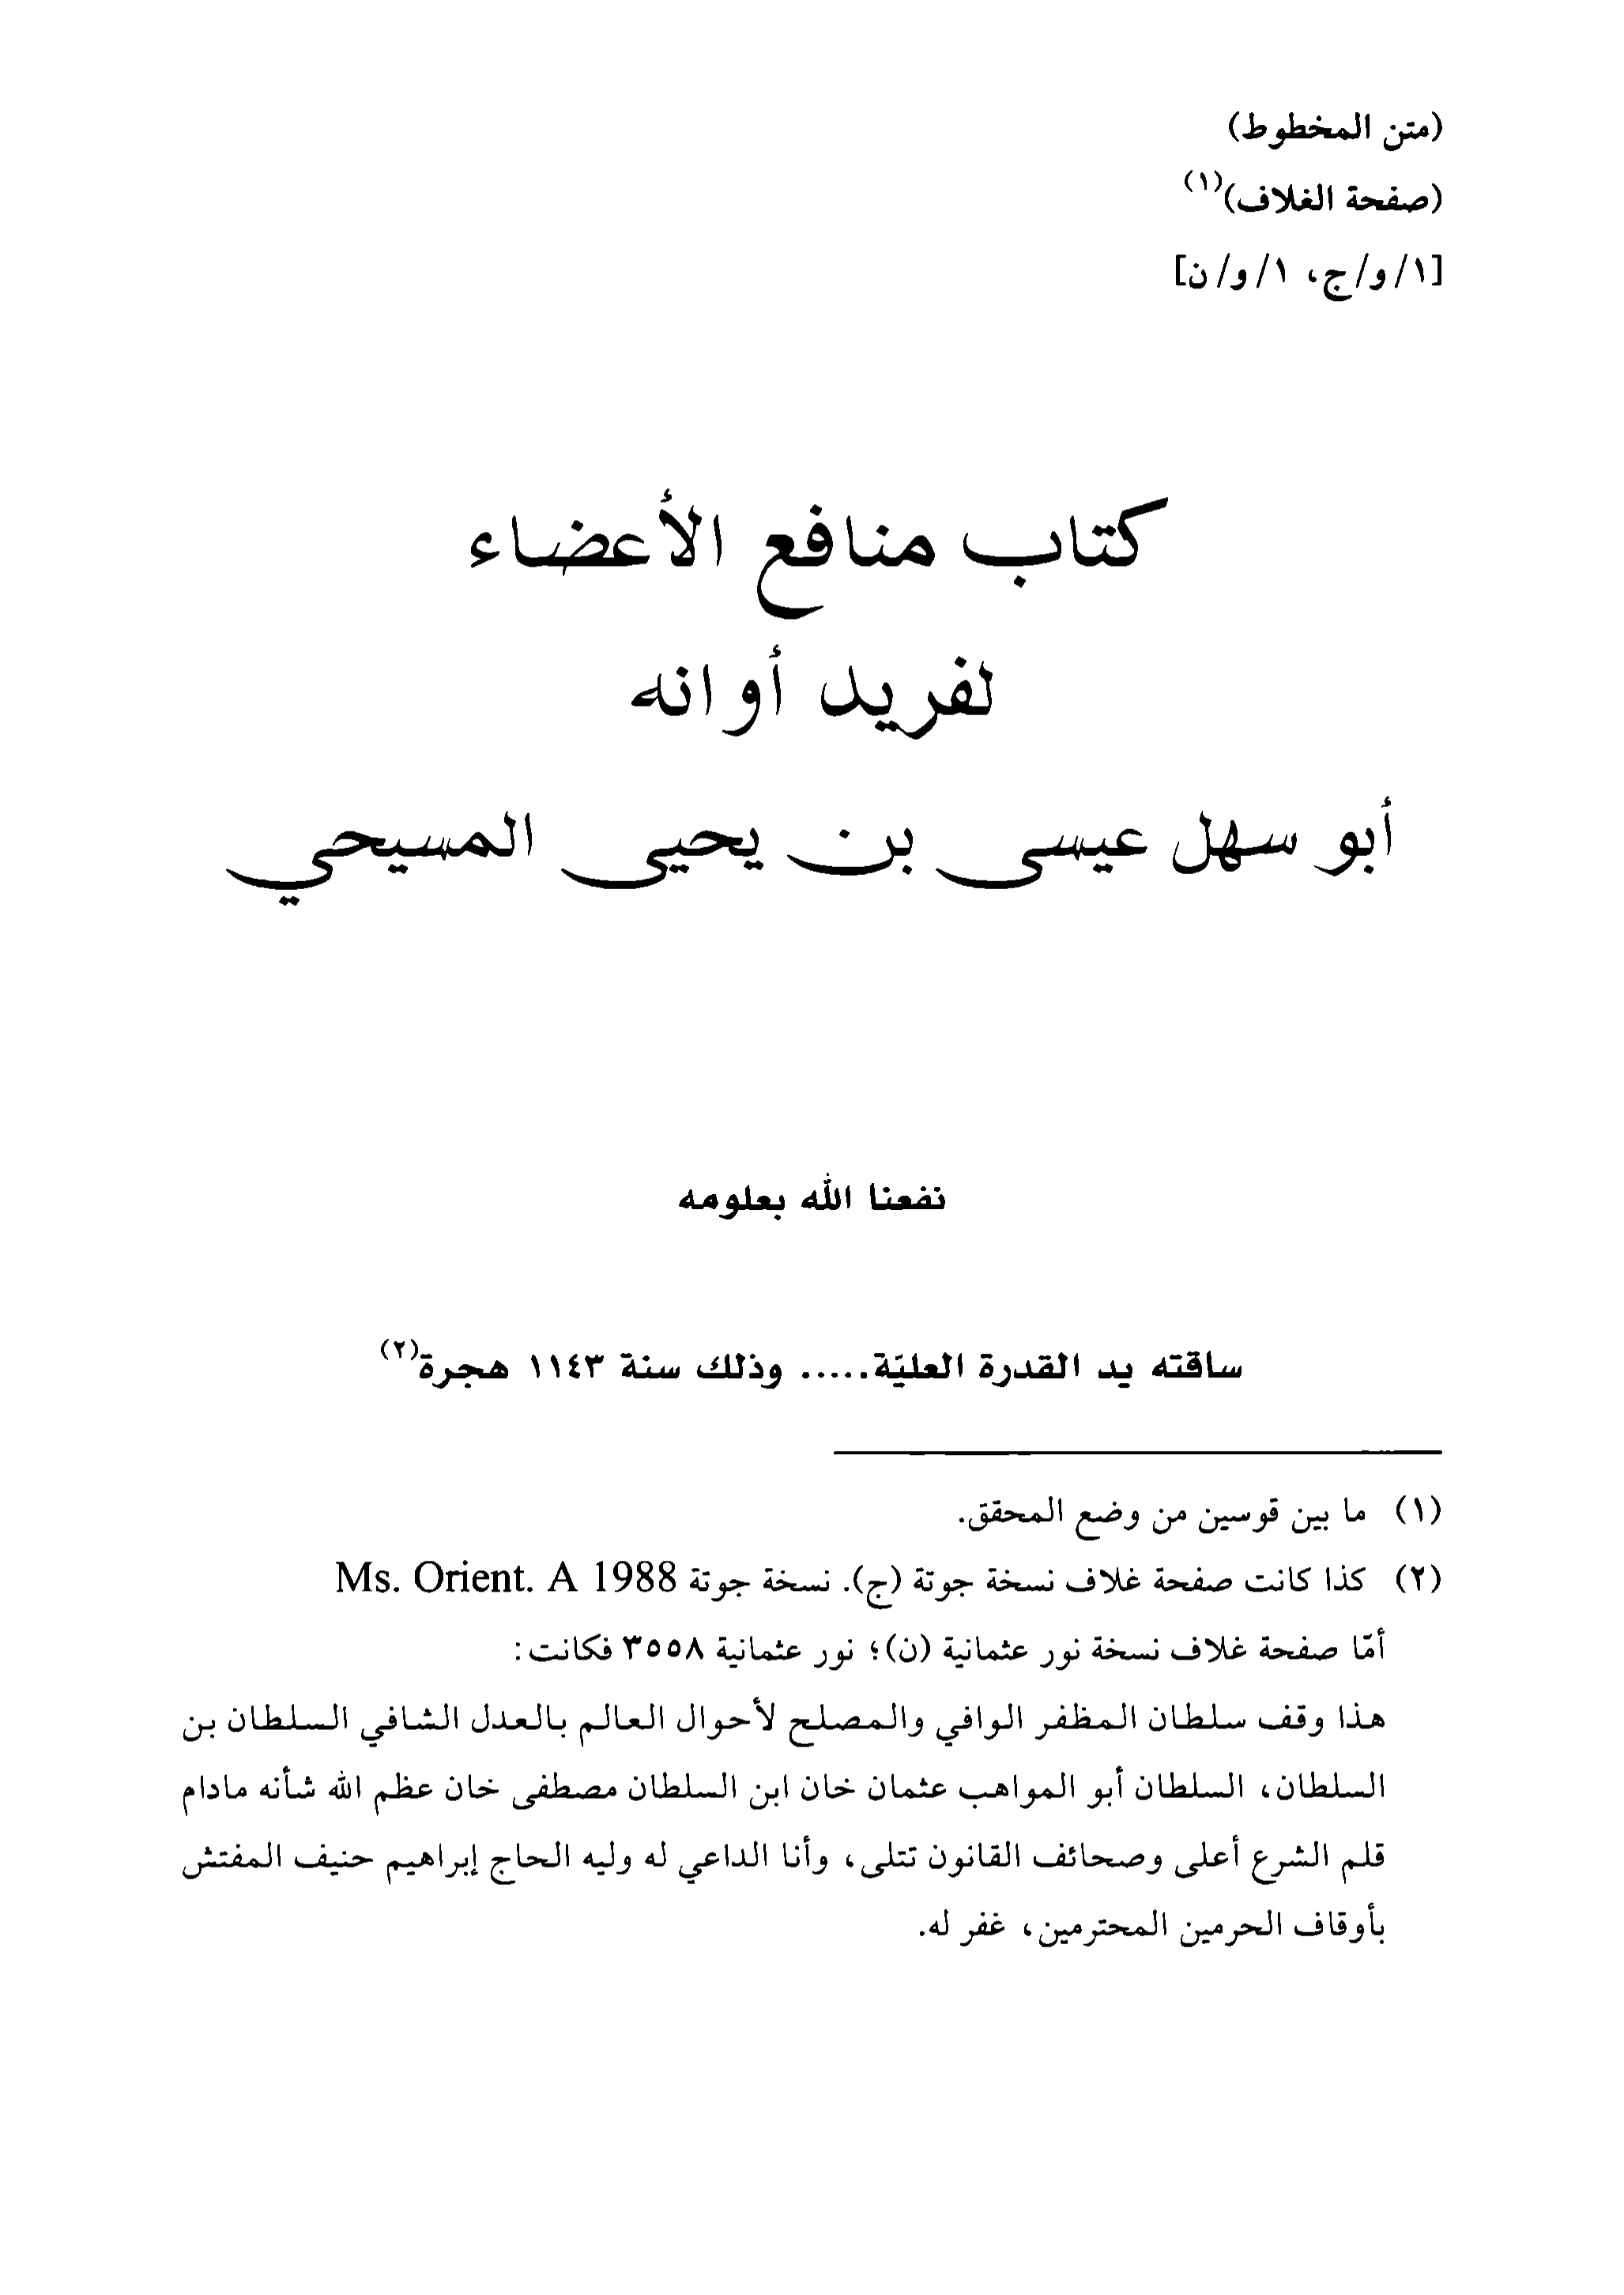 (متن المخطوط)
(صفحة الغلاف)(١)
[١/و/ج، ١/و/ن]
كتاب منافع الأعضاء
لفريد أوانه
أبو سهل عيسى بن يحيى المسيحي
نفعنا الله بعلومه
ساقته يد القدرة العليّة..... وذلك سنة ١١٤٣ هجرة(٢)
(١) ما بين قوسين من وضع المحقق.
(٢) كذا كانت صفحة غلاف نسخة جوتة (ج). نسخة جوتة Ms. Orient. A 1988
أمّا صفحة غلاف نسخة نور عثمانية (ن)؛ نور عثمانية ٣٥٥٨ فكانت:
هذا وقف سلطان المظفر الوافي والمصلح لأحوال العالم بالعدل الشافي السلطان بن
السلطان، السلطان أبو المواهب عثمان خان ابن السلطان مصطفى خان عظم الله شأنه مادام
قلم الشرع أعلى وصحائف القانون تتلى، وأنا الداعي له وليه الحاج إبراهيم حنيف المفتش
بأوقاف الحرمين المحترمين، غفر له.